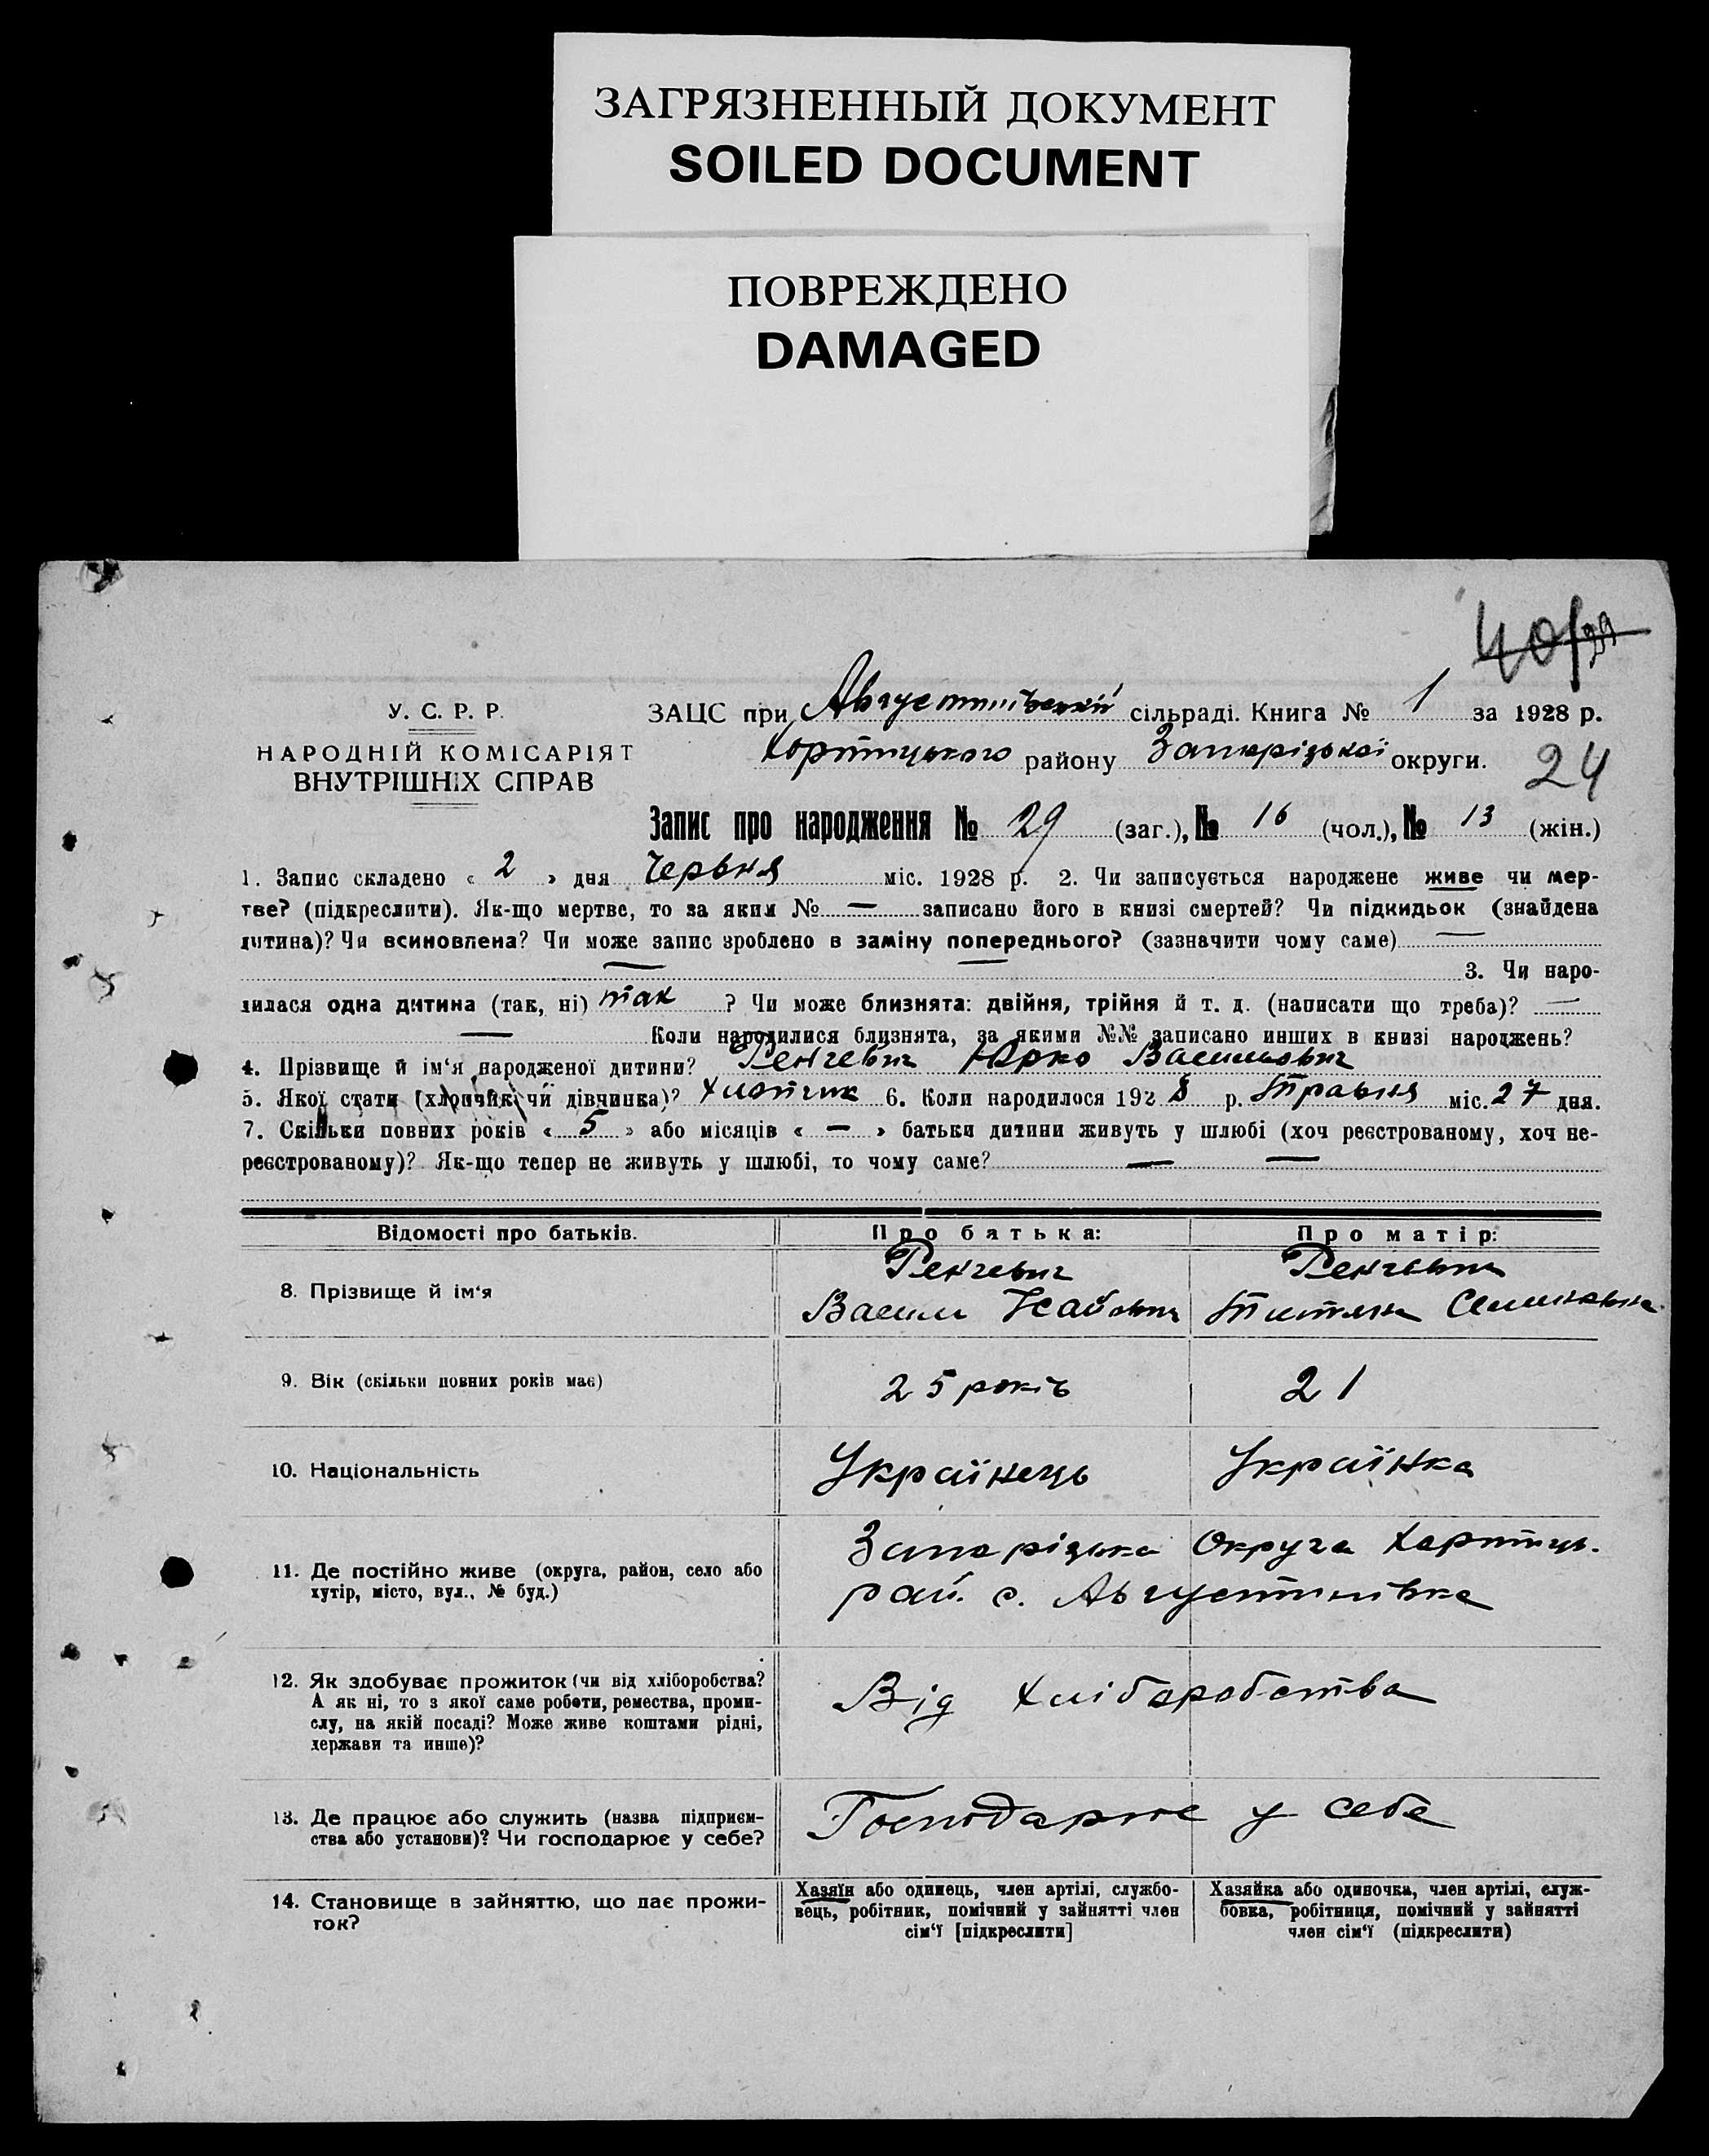 ЗАГРЯЗНЕННЫЙ ДОКУМЕНТ
SOILED DOCUMENT
ПОВРЕЖДЕНО
DAMAGED
40/39
У. С. Р. Р.
НАРОДНІЙ КОМІСАРІЯТ
ВНУТРІШНІХ СПРАВ
ЗАЦС при Августинівській сільраді. Книга № 1 за 1928 р.
Хортицького району Запорізької округи.
24
Запис про народження № 29 (заг.), № 16 (чол.), № 13 (жін.)
1. Запис складено « 2 » дня Червня міс. 1928 р. 2. Чи записується народжене живе чи мер-
тве? (підкреслити). Як-що мертве, то за яким № — записано його в книзі смертей? Чи підкидьок (знайдена
дитина)? Чи всиновлена? Чи може запис зроблено в заміну попереднього? (зазначити чому саме) —
— — 3. Чи наро-
дилася одна дитина (так, ні) так ? Чи може близнята: двійня, трійня й т. д. (написати що треба)? —
— Коли народилися близнята, за якими №№ записано инших в книзі народжень?
4. Прізвище й ім‘я народженої дитини? Ренчевич Юрко Васильович
5. Якої стати (хлопчик чи дівчинка)? Хлопчик 6. Коли народилося 1928 р. Травня міс. 27 дня.
7. Скільки повних років « 5 » або місяців « — » батьки дитини живуть у шлюбі (хоч реєстрованому, хоч не-
реєстрованому)? Як-що тепер не живуть у шлюбі, то чому саме? — —
Відомості про батьків. Про батька: Про матір:
8. Прізвище й ім‘я
Ренчевич
Василь
Ренчевич
9. Вік (скільки повних років має) 25 років 21
10. Національність Українець Українка
11. Де постійно живе (округа, район, село або
хутір, місто, вул., № буд.)
Запорізька Округа Хортиць.
рай. с. Августинівка
12. Як здобуває прожиток (чи від хліборобства?
А як ні, то з якої саме роботи, ремества, проми-
слу, на якій посаді? Може живе коштами рідні,
держави та инше)?
Від Хліборобства
13. Де працює або служить (назва підприєм-
ства або установи)? Чи господарює у себе?
Господарює у себе
14. Становище в зайняттю, що дає прожи-
ток?
Хазяїн або одинець, член артілі, службо-
вець, робітник, помічний у зайнятті член
сім‘ї [підкреслити]
Хазяйка або одиночка, член артілі, служ-
бовка, робітниця, помічний у зайнятті
член сім‘ї (підкреслити)